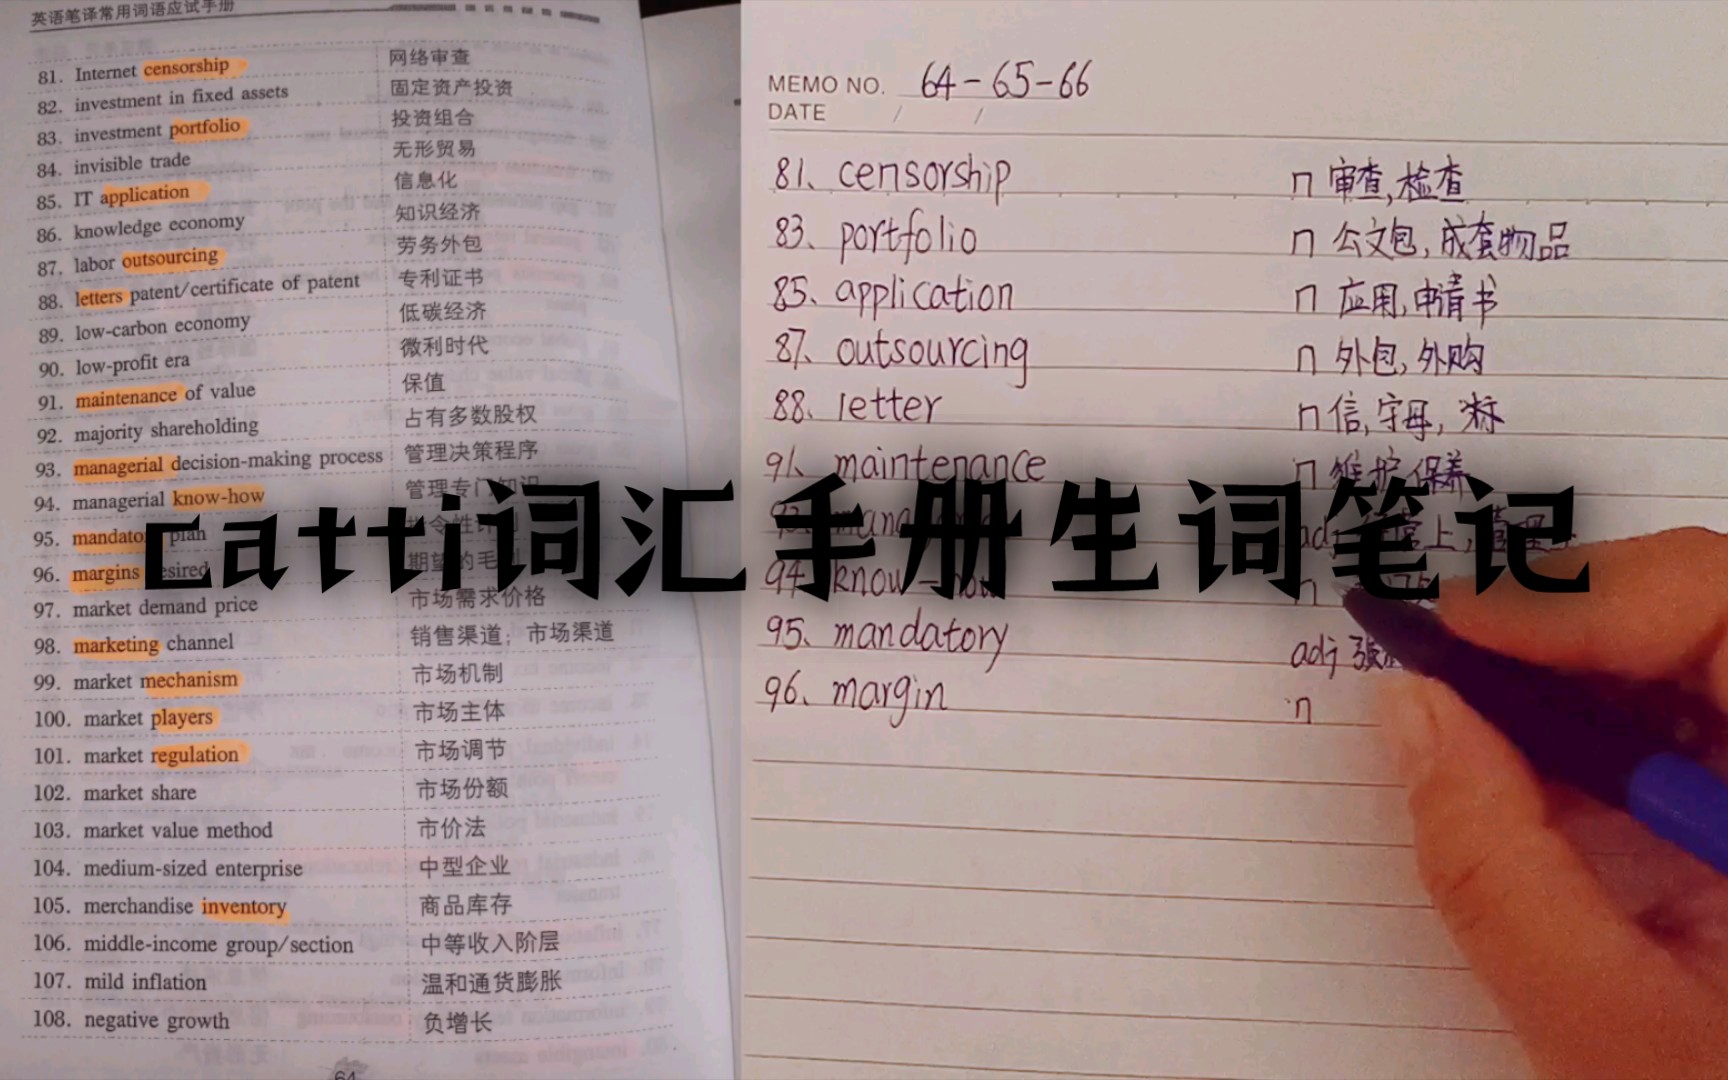 英语笔译常用词语应试手册
81. Internet censorship 网络审查
82. investment in fixed assets 固定资产投资
83. investment portfolio 投资组合
84. invisible trade 无形贸易
85. IT application 信息化
86. knowledge economy 知识经济
87. labor outsourcing 劳务外包
88. letters patent/certificate of patent 专利证书
89. low-carbon economy 低碳经济
90. low-profit era 微利时代
91. maintenance of value 保值
92. majority shareholding 占有多数股权
93. managerial decision-making process 管理决策程序
94. managerial know-how 管理专门知识
95. plan
96. margins
97. market demand price 市场需求价格
98. marketing channel 销售渠道；市场渠道
99. market mechanism 市场机制
100. market players 市场主体
101. market regulation 市场调节
102. market share 市场份额
103. market value method 市价法
104. medium-sized enterprise 中型企业
105. merchandise inventory 商品库存
106. middle-income group/section 中等收入阶层
107. mild inflation 温和通货膨胀
108. negative growth 负增长
64
MEMO NO. 64-65-66
DATE / /
81、censorship n 审查,检查
83、portfolio n 公文包,成套物品
85、application n 应用,申请书
87、outsourcing n 外包,外购
88、letter n 信,字母,
91、maintenance n 维护,保养
94、know-how n
95、mandatory adj
96、margin n
catti词汇手册生词笔记